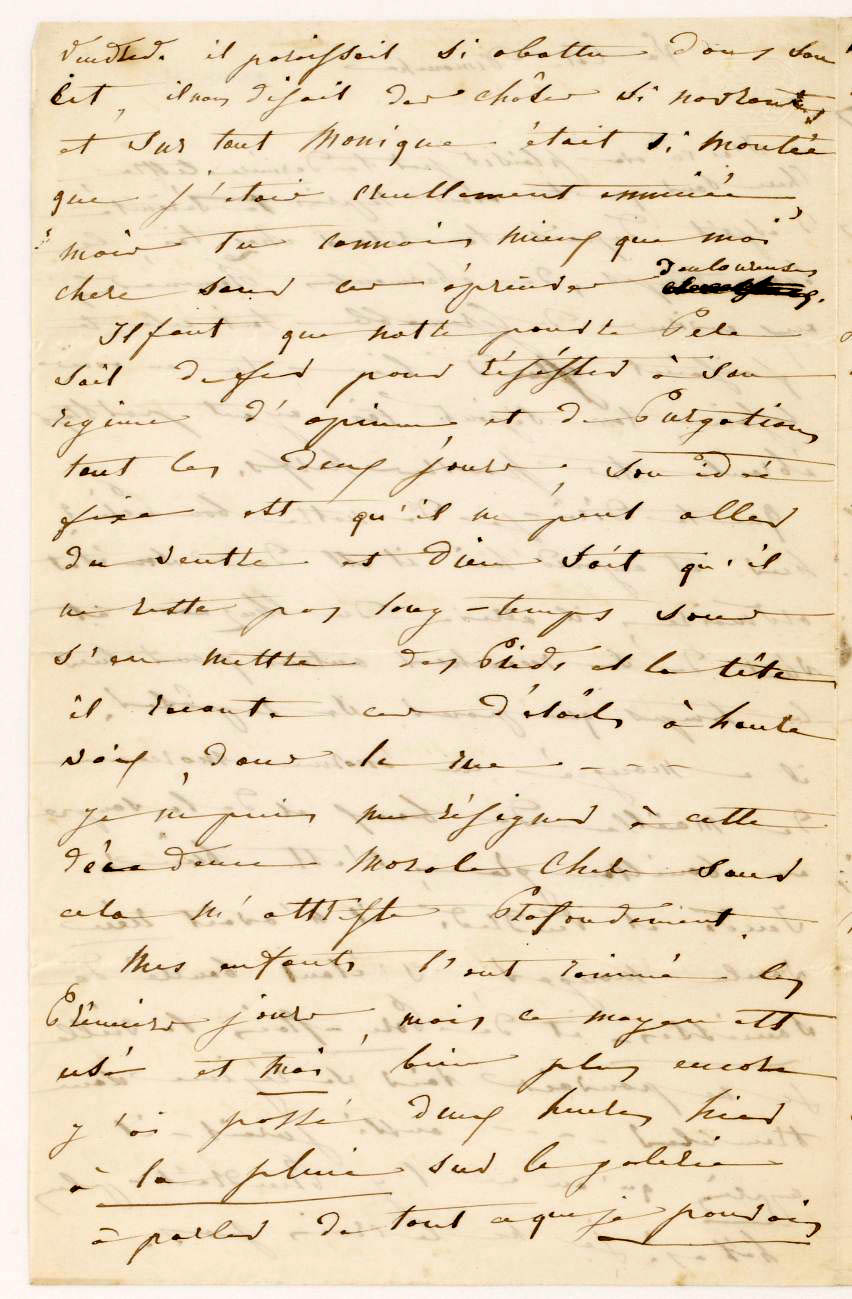 vendred. il paroissoit si abattu dans son
lit, il nous disait des chôses si navrantes
et sur tout Monique était si montée
que j'etois cruellement ennuiée
mais tu connois mieux que moi
chere soeur ces épreuves douloureuses.
Il faut que notre pauvre Pere
soit de fer pour résister à son
régime d'opium et de Purgations
tout les deux jours, son idée
fixe est qu'il ne peut aller
du ventre et Dieu sait qu'il
ne reste pas long-temps sans
s'en mettre des Pieds et la tête
il raconte ces détails à haute
voix, dans la rue - - -
je n'puis me résigner à cette
décadence Morale Chere soeur
cela m'attriste Profondement.
Mes enfants l'ont ranimé les
Premiers jours, mais ce moyen est
usé et moi, bien plus encore
j'ai passé deux heures hier
à la pluie sur la galerie
à parler de tout ce que je pouvois